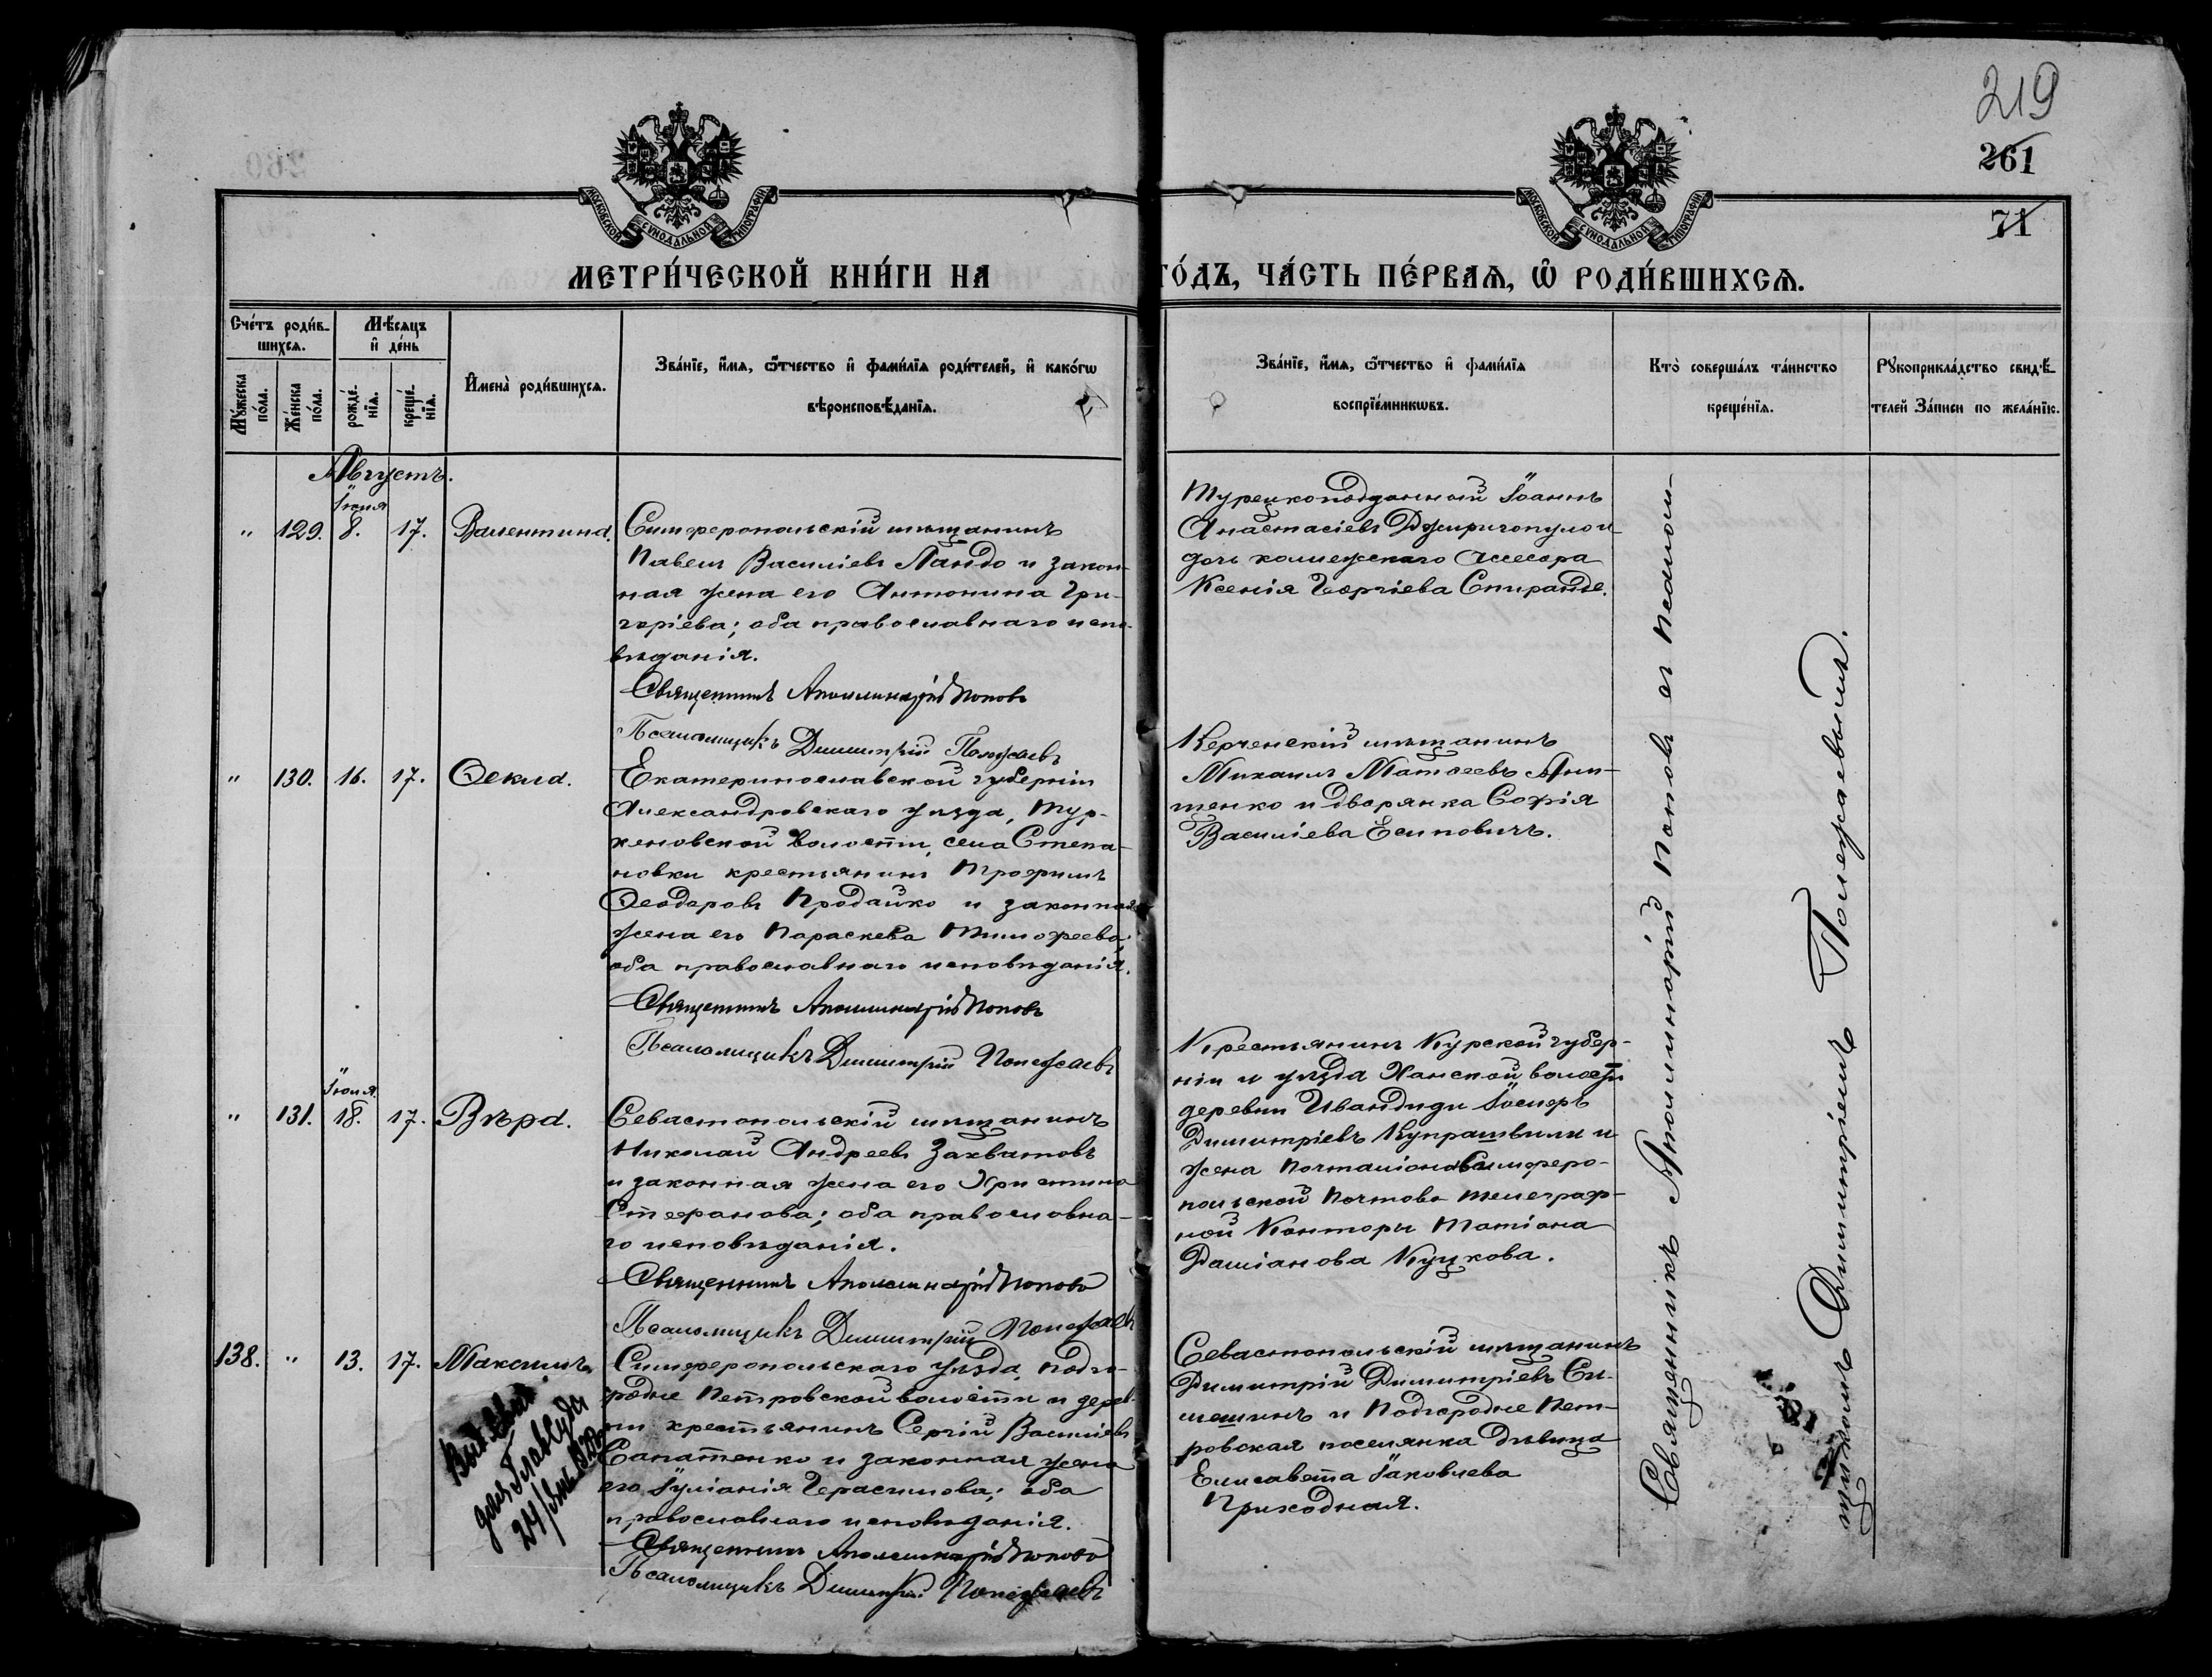 219
261
71
МОСКОВСКОЙ СѴНОДАЛЬНОЙ ТИПОГРАФІИ
МОСКОВСКОЙ СѴНОДАЛЬНОЙ ТИПОГРАФІИ
МЕТРИ́ЧЕСКОЙ КНИ́ГИ НА ГО́ДЪ, ЧА́СТЬ ПЕ́РВАѦ, Ѿ РОДИ́ВШИХСѦ.
Сче́тъ роди́в-
шихсѧ.
Мѣ́сѧцъ
и҆ де́нь
Мꙋ́жеска по́ла.
Же́нска по́ла.
рожде́нїѧ.
креще́нїѧ.
И҆мена̀ роди́вшихсѧ.
Зва́нїе, и҆́мѧ, ѻ҆́тчество и҆ фами́лїѧ роди́телей, и҆ како́гѡ
вѣроисповѣ́данїѧ.
Зва́нїе, и҆́мѧ, ѻ҆́тчество и҆ фами́лїѧ
воспрїе́мникѡвъ.
Кто̀ соверша́лъ та́инство
креще́нїѧ.
Рꙋкоприкла́дство свидѣ́-
телей за́писи по жела́нїю.
Августъ.
Іюня
" 129. 8. 17. Валентина.
Симферопольскій мѣщанинъ
Павелъ Василіевъ Ландо и закон-
ная жена его Антонина Гри-
горіева; оба православнаго испо-
вѣданія.
Священникъ Аполлинарій Поповъ
Псаломщикъ Димитрій Полежаевъ
Турецкоподданный Іоаннъ
Анастасіевъ Джиричопуло и
дочь коллежскаго Ассесора
Ксенія Георгіева Спиранде.
" 130. 16. 17. Ѳекла.
Екатеринославской губерніи
Александровскаго уѣзда, Тур-
кеновской волости, села Степа-
новки крестьянинъ Трофимъ
Ѳеодоровъ Продайко и законная
жена его Параскева Тимофеева;
оба православнаго исповѣданія.
Священникъ Аполлинарій Поповъ
Псаломщикъ Димитрій Полежаевъ
Керченскій мѣщанинъ
Михаилъ Матѳеевъ Лип-
щенко и дворянка Софія
Василіева Есиповичъ.
Іюля.
" 131. 18. 17. Вѣра.
Севастопольскій мѣщанинъ
Николай Андреевъ Захватовъ
и законная жена его Христина
Стефанова; оба православна-
го исповѣданія.
Священникъ Аполлинарій Поповъ
Псаломщикъ Димитрій Полежаевъ
Крестьянинъ Курской губер-
ніи и уѣзда Ханской волости
деревни Ивандиди Іосифъ
Димитріевъ Купрашвили и
жена почталіона Симферо-
польской Почтово телеграф-
ной Конторы Татіана
Даміанова Куцкова.
138. " 13. 17. Максимъ.
Симферопольскаго уѣзда, подго-
родне Петровской волости и дерев-
ни крестьянинъ Сергій Василіевъ
Сапатенко и законная жена
его Іуліанія Герасимова; оба
православнаго исповѣданія.
Священникъ Аполлинарій Поповъ
Псаломщикъ Димитрій Полежаевъ
Севастопольскій мѣщанинъ
Димитрій Димитріевъ Си-
мешинъ и Подгородне Пет-
ровская поселянка дѣвица
Елисавета Іаковлева
Приходная.
Священникъ Аполлинарій Поповъ съ псалом-
щикомъ Димитріемъ Полежаевымъ.